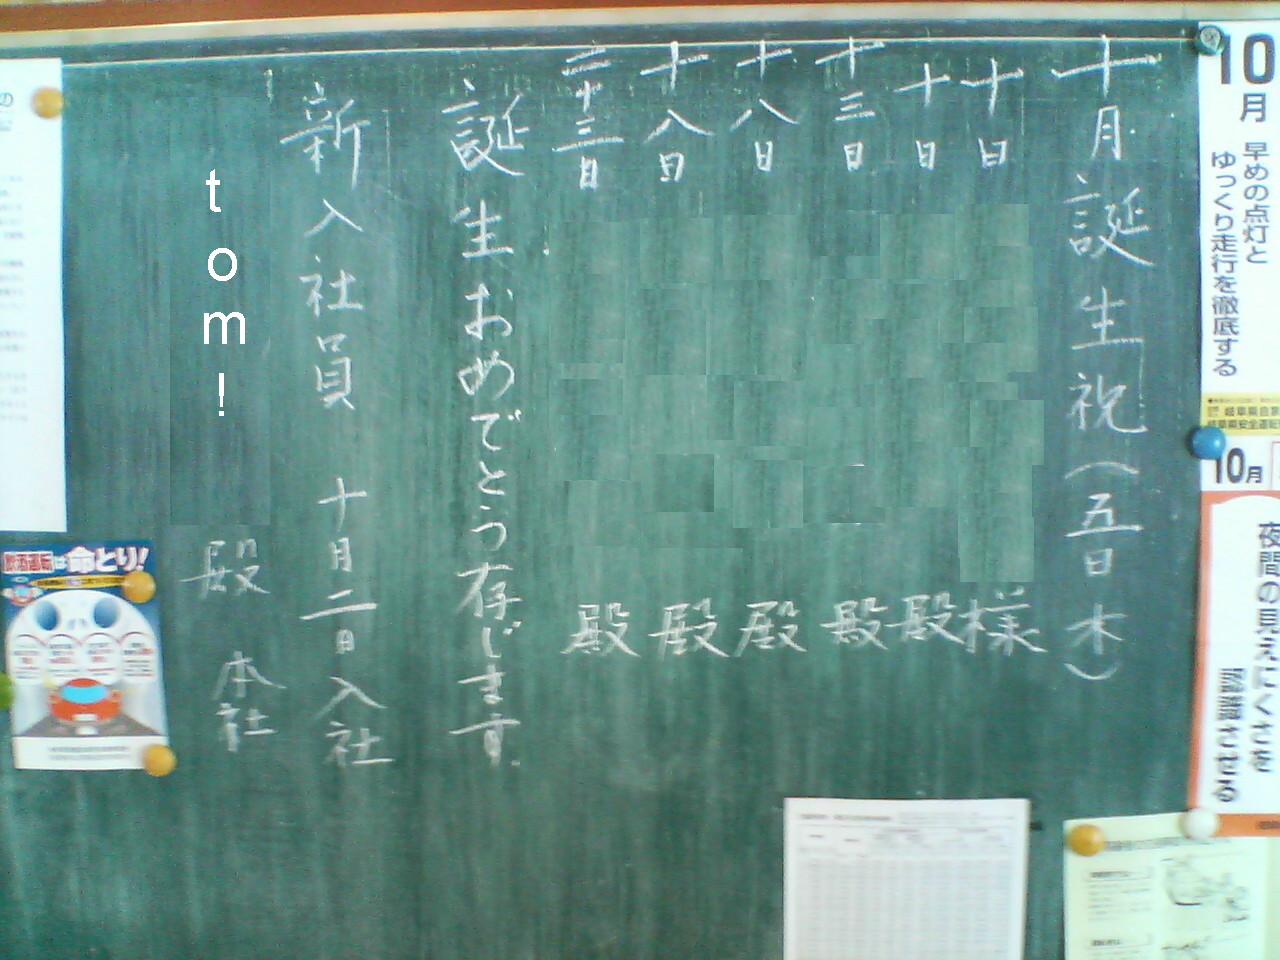 十月誕生祝(五日木)
十日 様
十日 殿
十三日 殿
十八日 殿
十八日 殿
二十三日 殿
誕生おめでとう存じます.
新入社員 十月二日入社
tom! 殿 本社
10月
早めの点灯と
ゆっくり走行を徹底する
10月
夜間の見えにくさを
認識させる
飲酒運転は命とり!
の